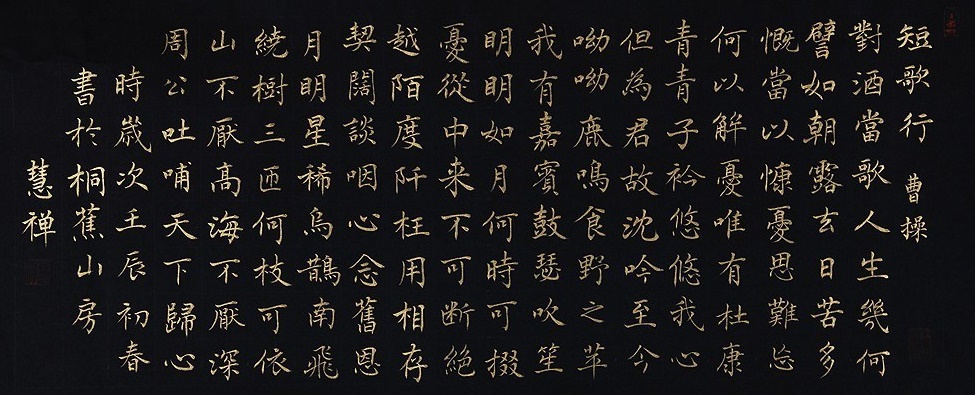 短歌行 曹操
對酒當歌人生幾何
譬如朝露去日苦多
慨當以慷憂思難忘
何以解憂唯有杜康
青青子衿悠悠我心
但為君故沈吟至今
呦呦鹿鳴食野之苹
我有嘉賓鼓瑟吹笙
明明如月何時可掇
憂從中来不可断絕
越陌度阡枉用相存
契闊談咽心念舊恩
月明星稀烏鵲南飛
繞樹三匝何枝可依
山不厭高海不厭深
周公吐哺天下歸心
時歲次壬辰初春
書於桐蕉山房
慧禅